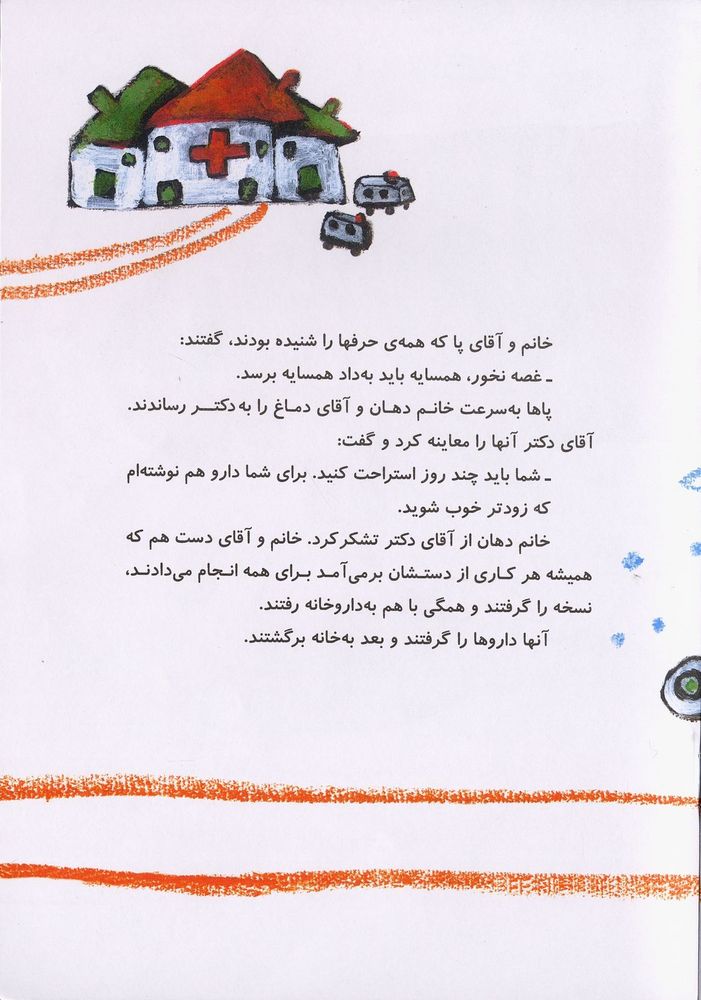 خانم و آقای پا که همه‌ی حرفها را شنیده بودند، گفتند:
ـ غصه نخور، همسایه باید به‌داد همسایه برسد.
پاها به‌سرعت خانم دهان و آقای دماغ را به دکتر رساندند.
آقای دکتر آنها را معاینه کرد و گفت:
ـ شما باید چند روز استراحت کنید. برای شما دارو هم نوشته‌ام
که زودتر خوب شوید.
خانم دهان از آقای دکتر تشکر کرد. خانم و آقای دست هم که
همیشه هر کاری از دستشان برمی‌آمد برای همه انجام می‌دادند،
نسخه را گرفتند و همگی با هم به‌داروخانه رفتند.
آنها داروها را گرفتند و بعد به‌خانه برگشتند.